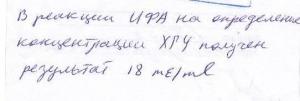 В реакции ИФА на определение
концентрации ХГЧ получен
результат 18 mE/ml